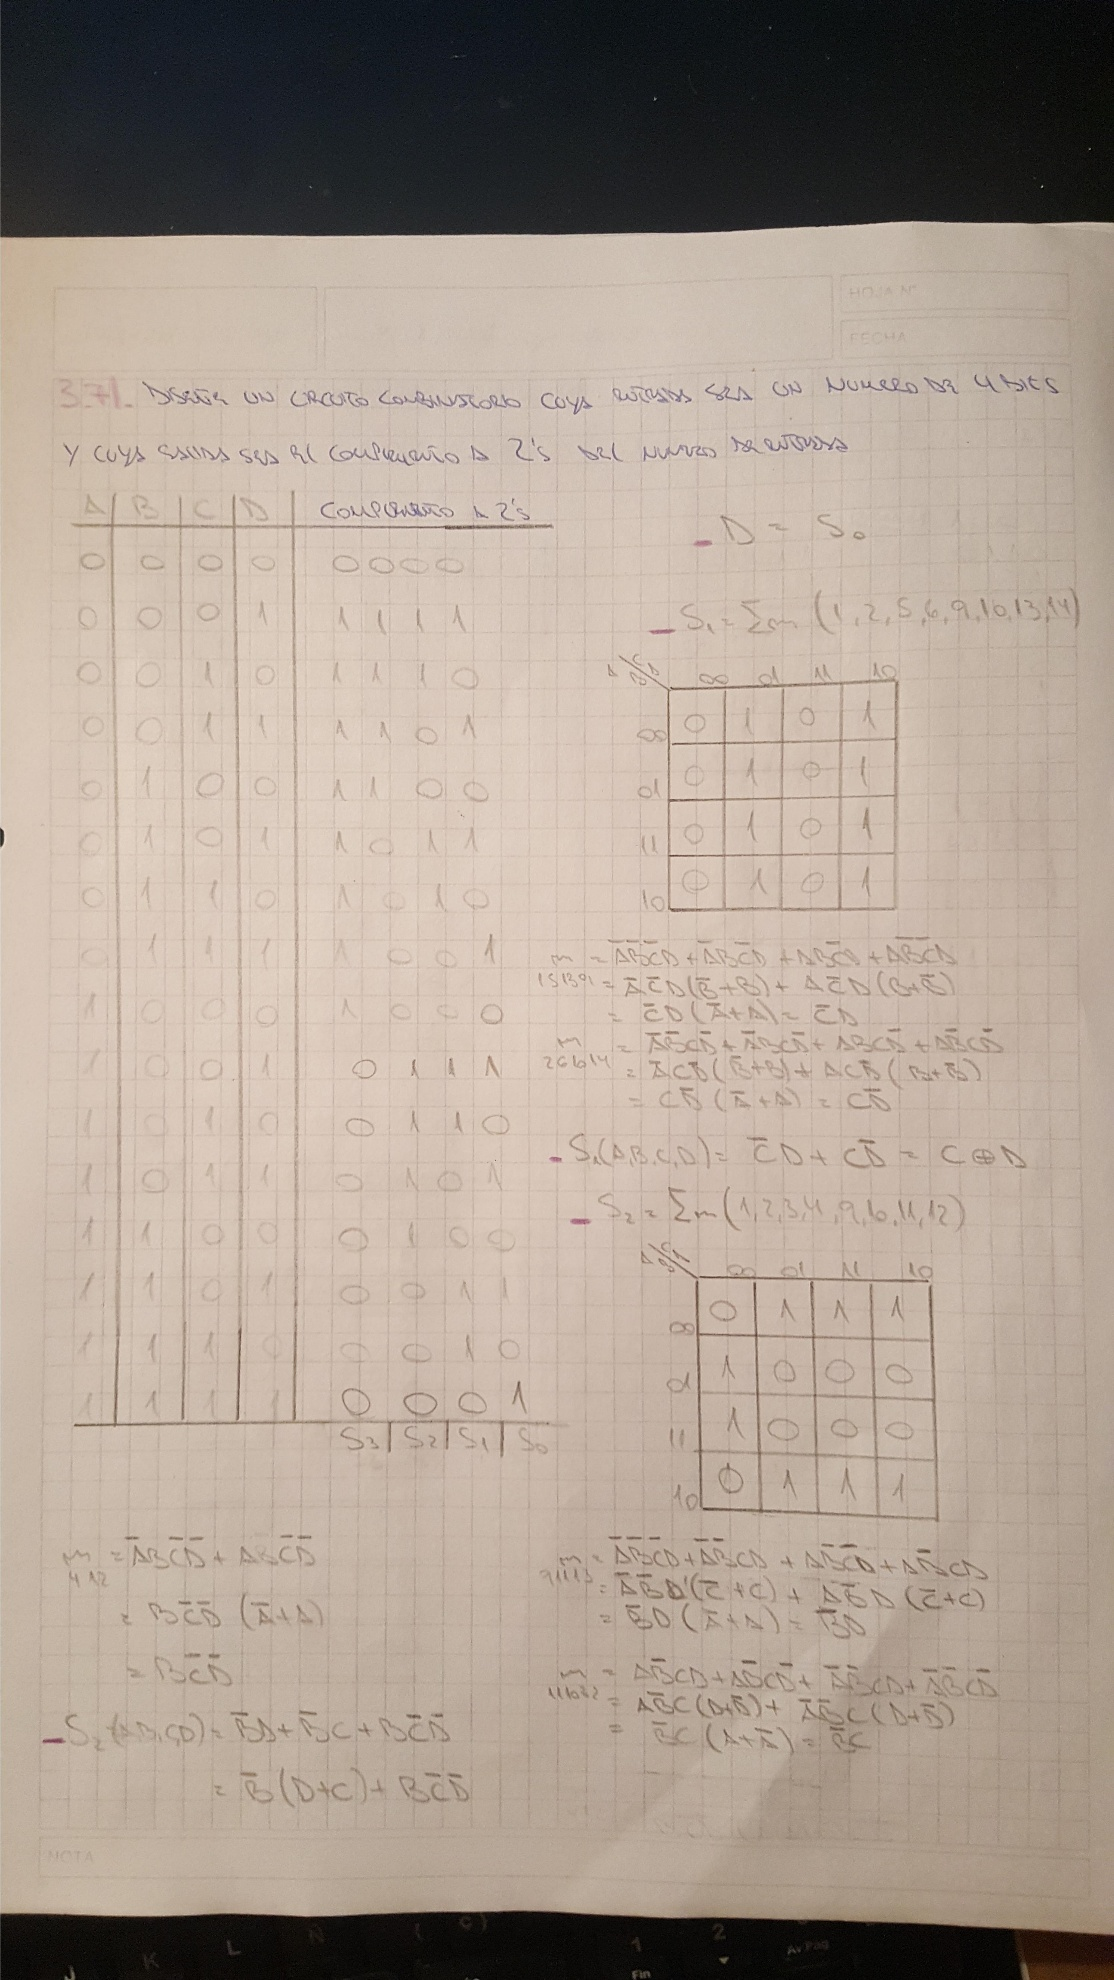 HOJA N°
FECHA
3.71. DISEÑE UN CIRCUITO COMBINATORIO CUYA ENTRADA SEA UN NUMERO DE 4 BITS
Y CUYA SALIDA SEA EL COMPLEMENTO A 2's DEL NUMERO DE ENTRADA
A B C D COMPLEMENTO A 2's
0 0 0 0 0 0 0 0
0 0 0 1 1 1 1 1
0 0 1 0 1 1 1 0
0 0 1 1 1 1 0 1
0 1 0 0 1 1 0 0
0 1 0 1 1 0 1 1
0 1 1 0 1 0 1 0
0 1 1 1 1 0 0 1
1 0 0 0 1 0 0 0
1 0 0 1 0 1 1 1
1 0 1 0 0 1 1 0
1 0 1 1 0 1 0 1
1 1 0 0 0 1 0 0
1 1 0 1 0 0 1 1
1 1 1 0 0 0 1 0
1 1 1 1 0 0 0 1
S3 S2 S1 S0
- D = S₀
- S₁ = Σm (1,2,5,6,9,10,13,14)
00 01 11 10
00 0 1 0 1
01 0 1 0 1
11 0 1 0 1
10 0 1 0 1
m = A̅B̅C̅D + A̅BC̅D + ABC̅D + AB̅C̅D
1 5 13 9 = A̅C̅D(B̅+B) + AC̅D(B+B̅)
= C̅D(A̅+A) = C̅D
m = A̅B̅CD̅ + A̅BCD̅ + ABCD̅ + AB̅CD̅
2 6 10 14 = A̅CD̅(B̅+B) + ACD̅(B+B̅)
= CD̅(A̅+A) = CD̅
- S₁(A,B,C,D) = C̅D + CD̅ = C⊕D
- S₂ = Σm(1,2,3,4,9,10,11,12)
00 01 11 10
00 0 1 1 1
01 1 0 0 0
11 1 0 0 0
10 0 1 1 1
m = A̅B̅C̅D + A̅B̅CD + AB̅C̅D + AB̅CD
9 11 1 3 = A̅B̅D(C̅+C) + AB̅D(C̅+C)
= B̅D(A̅+A) = B̅D
m = AB̅CD + AB̅CD̅ + A̅B̅CD + A̅B̅CD̅
11 10 3 2 = AB̅C(D+D̅) + A̅B̅C(D+D̅)
= B̅C(A+A̅) = B̅C
m = A̅BC̅D̅ + ABC̅D̅
4 12
= BC̅D̅ (A̅+A)
= BC̅D̅
- S₂(A,B,C,D) = B̅D + B̅C + BC̅D̅
= B̅(D+C) + BC̅D̅
NOTA
J K L Ñ
1 2
Fin
Av Pág